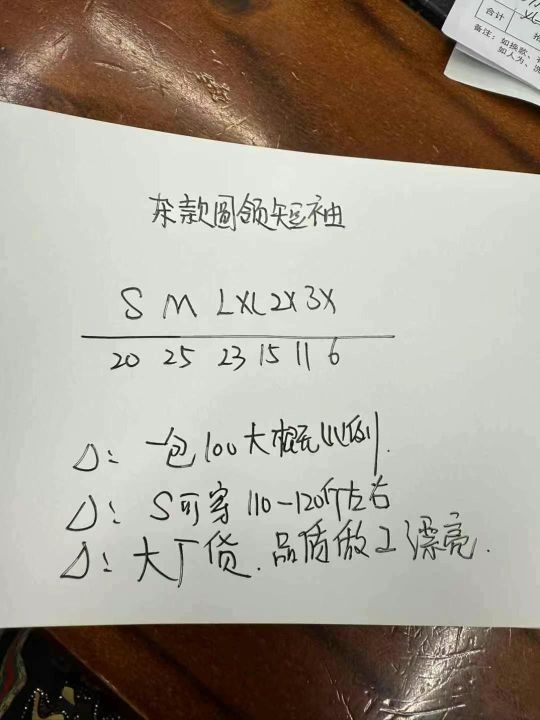 合计
备注：如换款、
如人为、
杂款圆领短袖
S M L XL 2X 3X
20 25 23 15 11 6
△：一包100大概比例.
△：S可穿110-120斤左右
△：大厂货.品质做工漂亮.